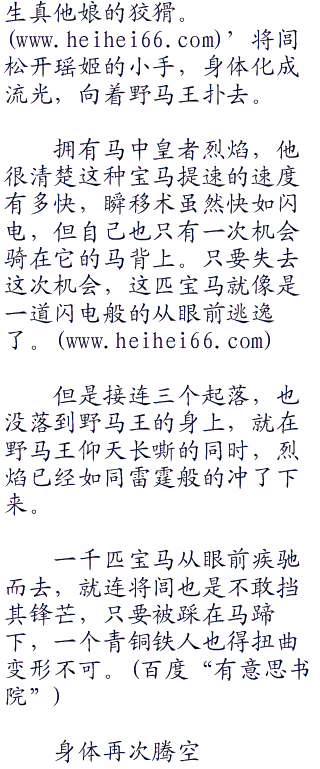 生真他娘的狡猾。
(www.heihei66.com)’将闾
松开瑶姬的小手，身体化成
流光，向着野马王扑去。
拥有马中皇者烈焰，他
很清楚这种宝马提速的速度
有多快，瞬移术虽然快如闪
电，但自己也只有一次机会
骑在它的马背上。只要失去
这次机会，这匹宝马就像是
一道闪电般的从眼前逃逸
了。(www.heihei66.com)
但是接连三个起落，也
没落到野马王的身上，就在
野马王仰天长嘶的同时，烈
焰已经如同雷霆般的冲了下
来。
一千匹宝马从眼前疾驰
而去，就连将闾也是不敢挡
其锋芒，只要被踩在马蹄
下，一个青铜铁人也得扭曲
变形不可。(百度“有意思书
院”)
身体再次腾空